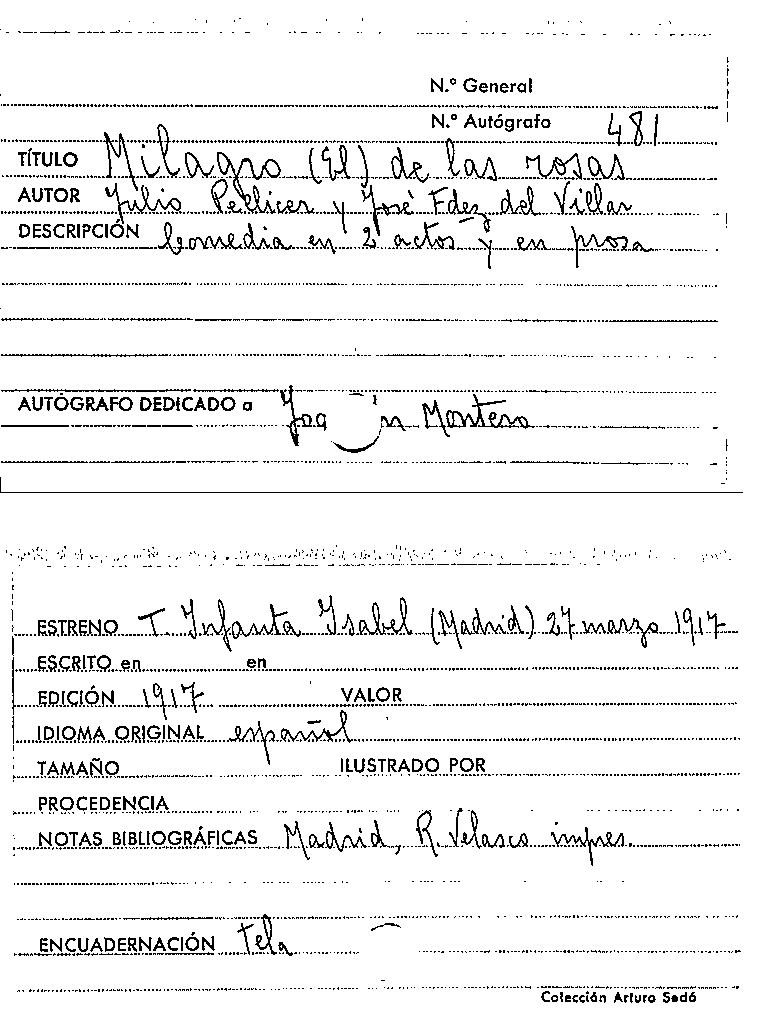 N.º General
N.º Autógrafo 481
TÍTULO Milagro (El) de las rosas
AUTOR Julio Pellicer y José Fdez del Villar
DESCRIPCIÓN Comedia en 2 actos y en prosa
AUTÓGRAFO DEDICADO a Joaq n Montero
ESTRENO T. Infanta Isabel (Madrid) 27 marzo 1917
ESCRITO en en
EDICIÓN 1917 VALOR
IDIOMA ORIGINAL español
TAMAÑO ILUSTRADO POR
PROCEDENCIA
NOTAS BIBLIOGRÁFICAS Madrid, R. Velasco impres.
ENCUADERNACIÓN Tela
Colección Arturo Sedó